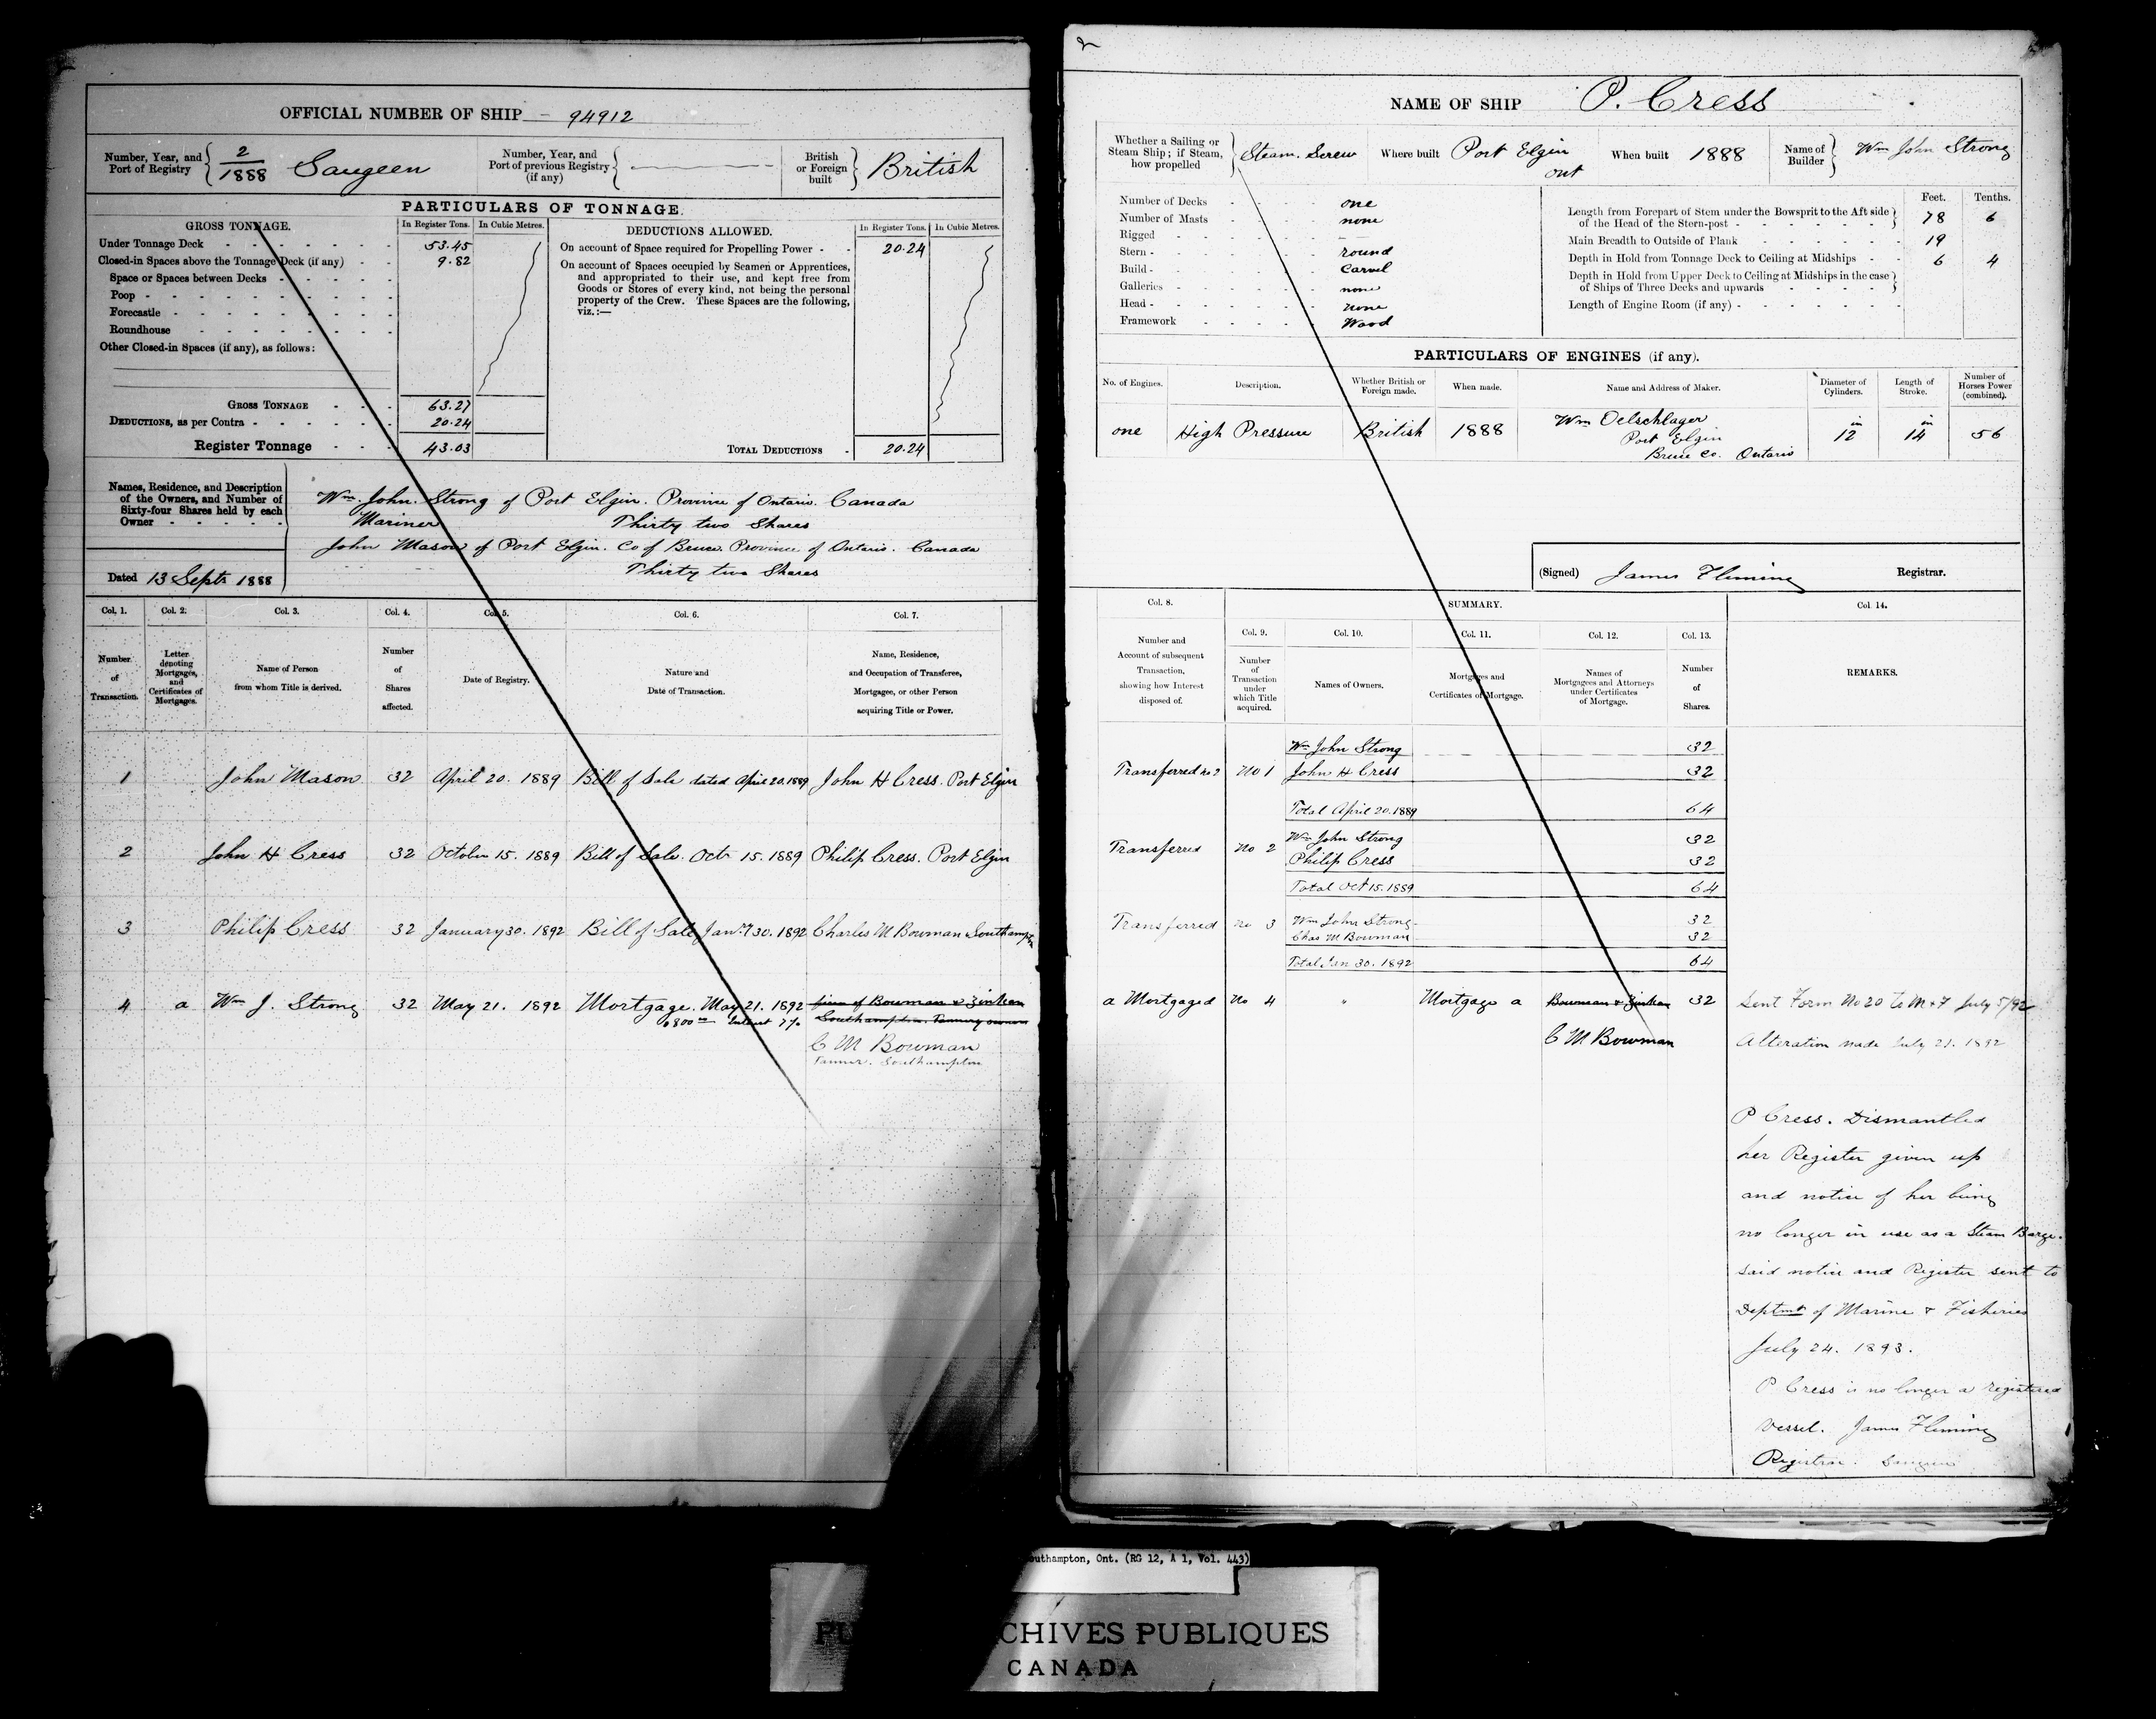 OFFICIAL NUMBER OF SHIP 94912
Number, Year, and Port of Registry 2/1888 Saugeen
Number, Year, and Port of previous Registry (if any)
British or Foreign built British
PARTICULARS OF TONNAGE.
GROSS TONNAGE. In Register Tons. In Cubic Metres.
Under Tonnage Deck 53.45
Closed-in Spaces above the Tonnage Deck (if any) 9.82
Space or Spaces between Decks
Poop
Forecastle
Roundhouse
Other Closed-in Spaces (if any), as follows:
GROSS TONNAGE 63.27
DEDUCTIONS, as per Contra 20.24
Register Tonnage 43.03
DEDUCTIONS ALLOWED. In Register Tons. In Cubic Metres.
On account of Space required for Propelling Power 20.24
On account of Spaces occupied by Seamen or Apprentices,
and appropriated to their use, and kept free from
Goods or Stores of every kind, not being the personal
property of the Crew. These Spaces are the following,
viz.:—
TOTAL DEDUCTIONS 20.24
Names, Residence, and Description
of the Owners, and Number of
Sixty-four Shares held by each
Owner
Dated 13 Septr 1888
Wm. John. Strong of Port Elgin. Province of Ontario. Canada
Mariner Thirty two Shares
John Mason of Port Elgin. Co of Bruce. Province of Ontario. Canada
Thirty two Shares
Col. 1. Col. 2. Col. 3. Col. 4. Col. 5. Col. 6. Col. 7.
Number of Transaction.
Letter denoting Mortgages, and Certificates of Mortgages.
Name of Person from whom Title is derived.
Number of Shares affected.
Date of Registry.
Nature and Date of Transaction.
Name, Residence, and Occupation of Transferee, Mortgagee, or other Person acquiring Title or Power.
1 John Mason 32 April 20. 1889 Bill of Sale dated April 20. 1889 John H Cress. Port Elgin
2 John H Cress 32 October 15. 1889 Bill of Sale. Octr 15. 1889 Philip Cress. Port Elgin
3 Philip Cress 32 January 30. 1892 Bill of Sale Jany 30. 1892 Charles M Bowman Southampton
4 a Wm J. Strong 32 May 21. 1892 Mortgage. May 21. 1892 firm of Bowman & Zinkan
$800 00 Interest 7% Southampton. Tannery owners
C M Bowman
Tanner. Southampton
2
NAME OF SHIP P. Cress
Whether a Sailing or Steam Ship; if Steam, how propelled Steam. Screw
Where built Port Elgin Ont
When built 1888
Name of Builder Wm John Strong
Number of Decks one
Number of Masts none
Rigged —
Stern round
Build Carvel
Galleries none
Head none
Framework Wood
Feet. Tenths.
Length from Forepart of Stem under the Bowsprit to the Aft side of the Head of the Stern-post 78 6
Main Breadth to Outside of Plank 19
Depth in Hold from Tonnage Deck to Ceiling at Midships 6 4
Depth in Hold from Upper Deck to Ceiling at Midships in the case of Ships of Three Decks and upwards
Length of Engine Room (if any)
PARTICULARS OF ENGINES (if any).
No. of Engines. Description. Whether British or Foreign made. When made. Name and Address of Maker. Diameter of Cylinders. Length of Stroke. Number of Horses Power (combined).
one High Pressure British 1888 Wm Oelschlager Port Elgin Bruce Co. Ontario 12 in 14 in 56
(Signed) James Fleming Registrar.
Col. 8. SUMMARY. Col. 14.
Col. 9. Col. 10. Col. 11. Col. 12. Col. 13.
Number and Account of subsequent Transaction, showing how Interest disposed of.
Number of Transaction under which Title acquired.
Names of Owners.
Mortgages and Certificates of Mortgage.
Names of Mortgagees and Attorneys under Certificates of Mortgage.
Number of Shares.
REMARKS.
Wm John Strong 32
Transferred no 2 No 1 John H Cress 32
Total April 20. 1889 64
Wm John Strong 32
Transferred No 2 Philip Cress 32
Total Oct 15. 1889 64
Transferred no 3 Wm John Strong 32
Chas M Bowman 32
Total Jan 30. 1892 64
a Mortgaged No 4 " Mortgage a Bowman & Zinkan 32 Sent Form No 20 to M & F July 5/92
C M Bowman Alteration made July 21. 1892
P Cress. Dismantled
her Register given up
and notice of her being
no longer in use as a Steam Barge.
Said notice and Register sent to
Deptmt of Marine & Fisheries
July 24. 1893.
P Cress is no longer a registered
vessel. James Fleming
Registrar. Saugeen
outhampton, Ont. (RG 12, A 1, Vol. 443)
PU CHIVES PUBLIQUES
CANADA